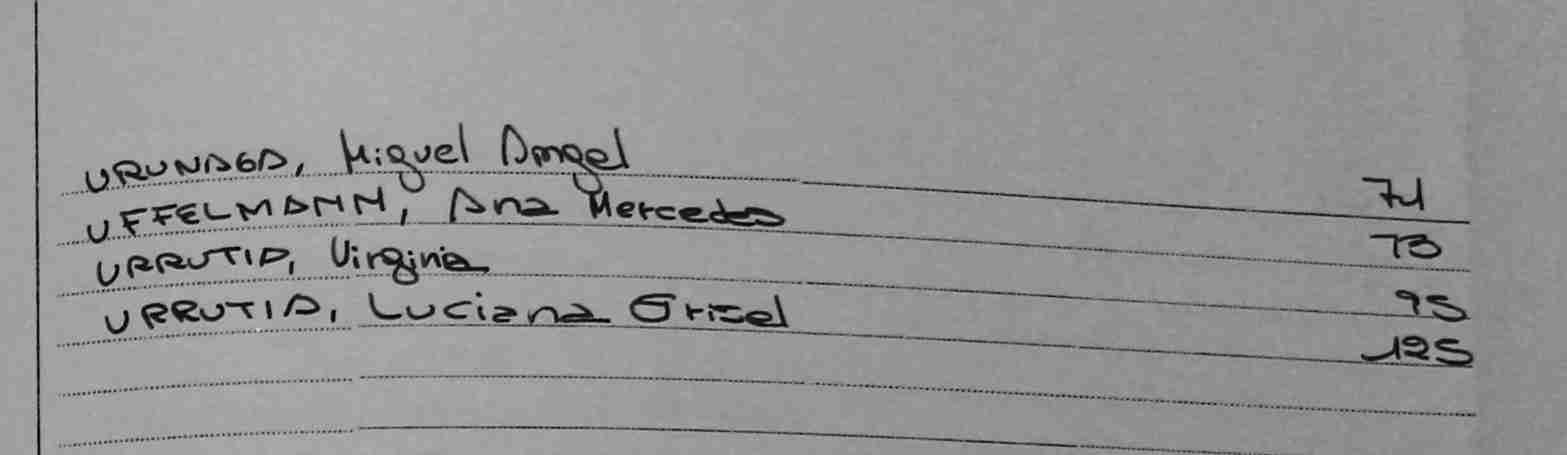 URUNAGA, Miguel Angel 71
UFFELMANN, Ana Mercedes 73
URRUTIA, Virginia 95
URRUTIA, Luciana Grisel 125